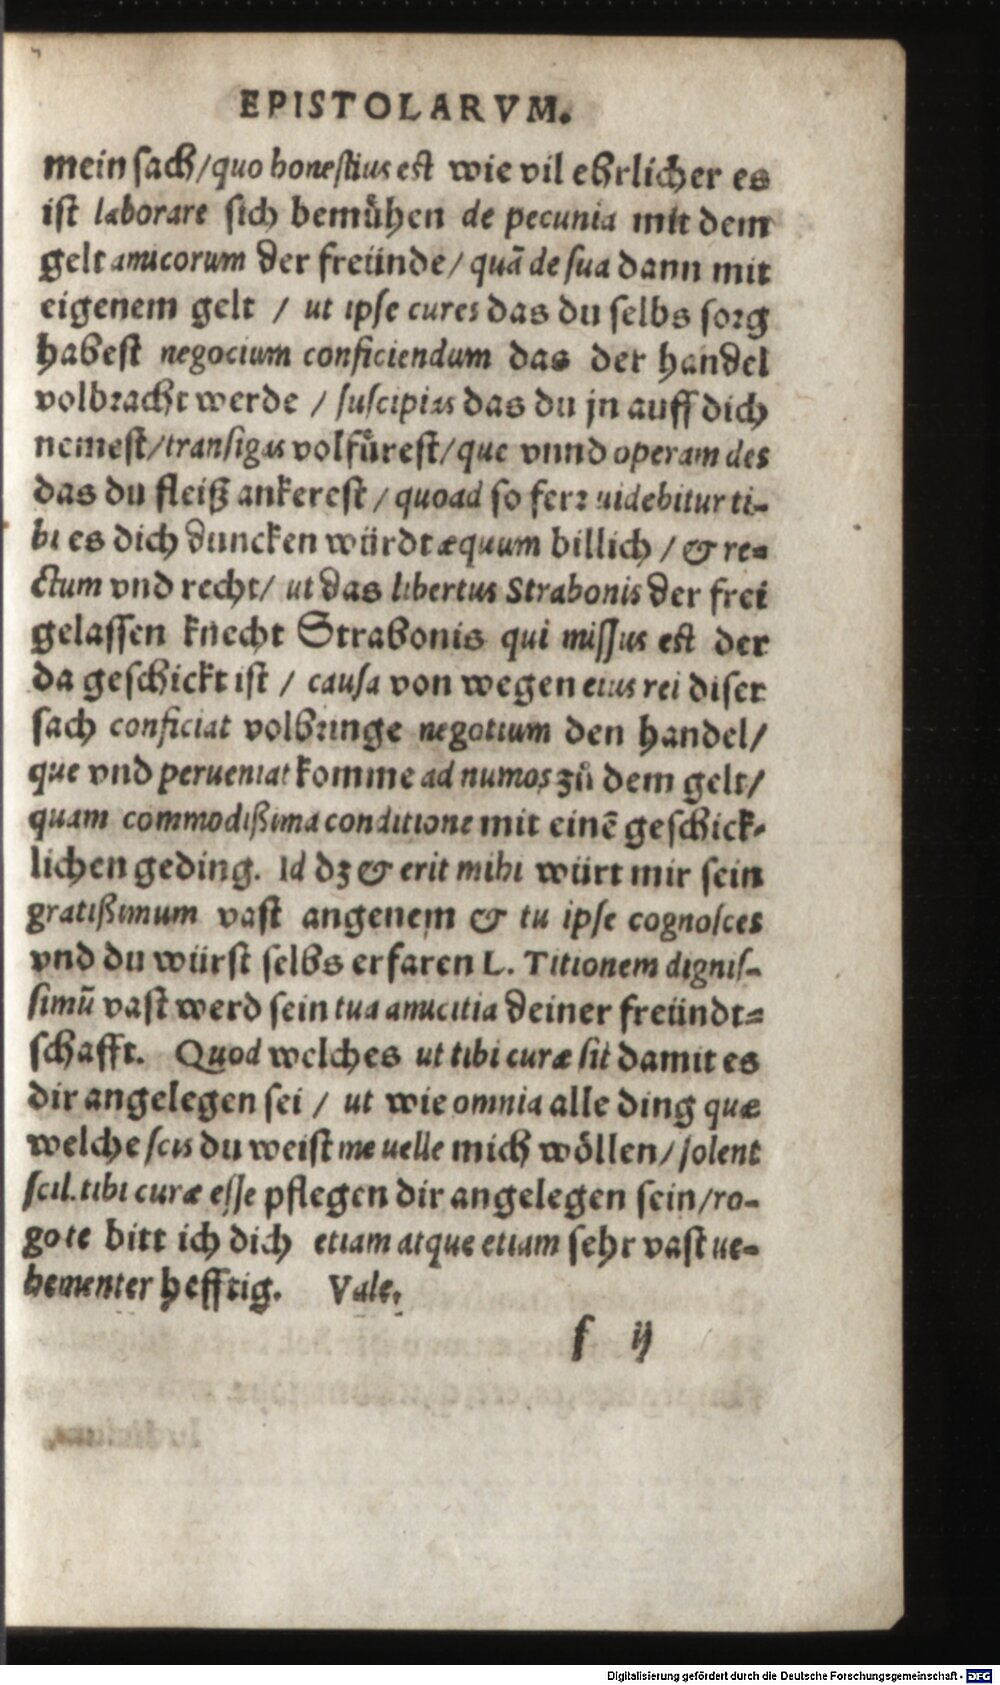 EPISTOLARVM.
mein sach/quo honestius est wie vil ehrlicher es
ist laborare sich bemühen de pecunia mit dem
gelt amicorum der freünde/ quā de sua dann mit
eigenem gelt / ut ipse cures das du selbs sorg
habest negocium conficiendum das der handel
volbracht werde / suscipias das du jn auff dich
nemest/transigas volfürest/que vnnd operam des
das du fleiß ankerest / quoad so ferr uidebitur ti-
bi es dich duncken würdt æquum billich / & re-
ctum vnd recht/ ut das libertus Strabonis der frei
gelassen knecht Strabonis qui missus est der
da geschickt ist / causa von wegen eius rei diser
sach conficiat volbringe negotium den handel/
que vnd perueniat komme ad numos zů dem gelt/
quam commodißima conditione mit einē geschick-
lichen geding. Id dz & erit mihi würt mir sein
gratißimum vast angenem & tu ipse cognosces
vnd du würst selbs erfaren L. Titionem dignis-
simū vast werd sein tua amicitia deiner freündt-
schafft. Quod welches ut tibi curæ sit damit es
dir angelegen sei / ut wie omnia alle ding quæ
welche scis du weist me uelle mich wöllen/solent
scil. tibi curæ esse pflegen dir angelegen sein/ro-
go te bitt ich dich etiam atque etiam sehr vast ue-
hementer hefftig. Vale.
f ij
Digitalisierung gefördert durch die Deutsche Forschungsgemeinschaft - DFG